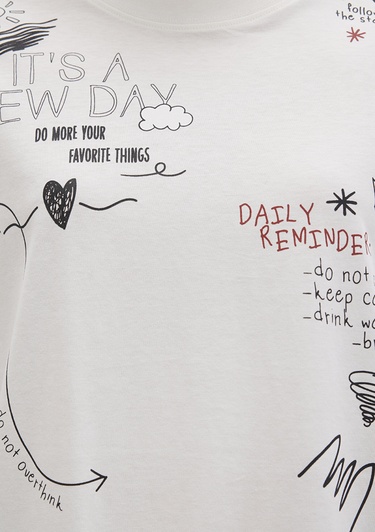 IT'S A
EW DAY
DO MORE YOUR
FAVORITE THINGS
the st
DAILY
REMINDER
-do not
-keep
-drink
do not overthink